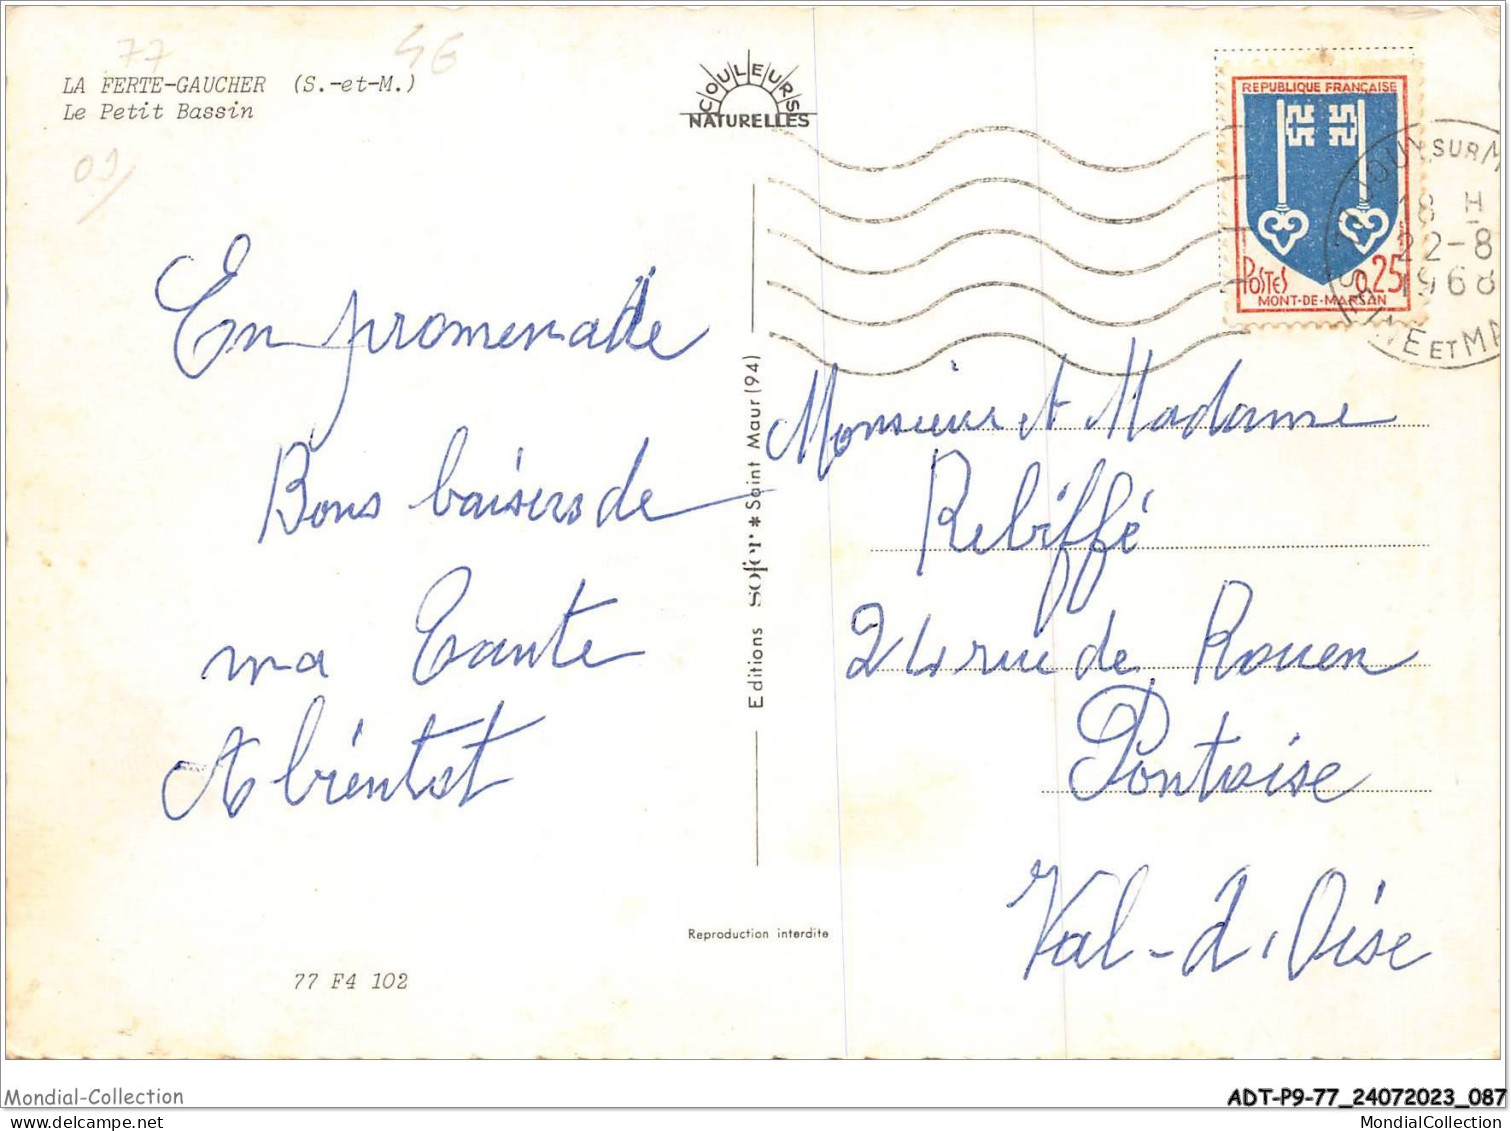 77
46
LA FERTE-GAUCHER (S.-et-M.)
Le Petit Bassin
09/
COULEURS
NATURELLES
REPUBLIQUE FRANÇAISE
POSTES 0,25
MONT-DE-MARSAN
JOUY SUR M
18 H
22-8
1968
SEINE ET MA
En promenade
Bons baisers de
ma Tante
A bientot
Editions sofer * Saint Maur (94)
Monsieur et Madame
Rebiffé
24 rue de Rouen
Pontoise
Val-d'Oise
Reproduction interdite
77 F4 102
Mondial-Collection
ADT-P9-77_24072023_087
MondialCollection